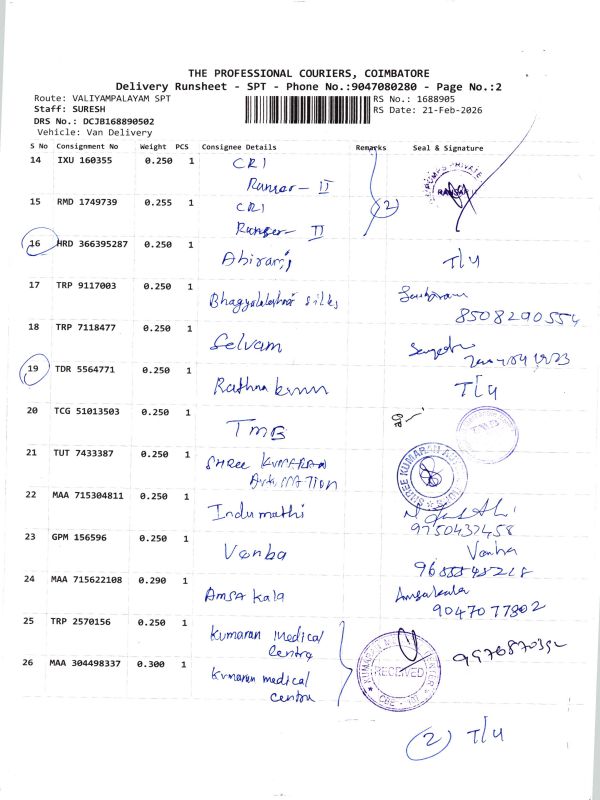 THE PROFESSIONAL COURIERS, COIMBATORE
Delivery Runsheet - SPT - Phone No.:9047080280 - Page No.:2
Route: VALIYAMPALAYAM SPT RS No.: 1688905
Staff: SURESH RS Date: 21-Feb-2026
DRS No.: DCJB168890502
Vehicle: Van Delivery
S No Consignment No Weight PCS Consignee Details Remarks Seal & Signature
14 IXU 160355 0.250 1 CRI
Ranger - II
15 RMD 1749739 0.255 1 CRI (2)
Ranger II
16 HRD 366395287 0.250 1 Abirami T/4
17 TRP 9117003 0.250 1 Bhagyalakshmi silks
8508290554
18 TRP 7118477 0.250 1 Selvam
19 TDR 5564771 0.250 1 Rathna T/4
20 TCG 51013503 0.250 1 TMB
21 TUT 7433387 0.250 1 SHREE KUMARAN
AUTOMATION
22 MAA 715304811 0.250 1 Indumathi
9750437458
23 GPM 156596 0.250 1 Vanba Vanba
24 MAA 715622108 0.290 1 Amsakala Amsakala
9047077802
25 TRP 2570156 0.250 1 Kumaran Medical
Centre
26 MAA 304498337 0.300 1 Kumaran medical RECEIVED
centre
(2) T/4